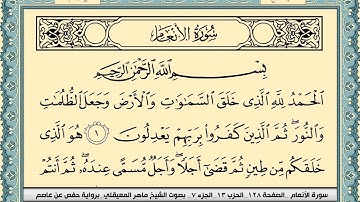 سُورَةُ الأَنْعَامِ
بِسْمِ اللَّهِ الرَّحْمَٰنِ الرَّحِيمِ
الْحَمْدُ لِلَّهِ الَّذِى خَلَقَ السَّمَٰوَٰتِ وَالْأَرْضَ وَجَعَلَ الظُّلُمَٰتِ
وَالنُّورَ ۖ ثُمَّ الَّذِينَ كَفَرُوا۟ بِرَبِّهِمْ يَعْدِلُونَ ۝١ هُوَ الَّذِى
خَلَقَكُم مِّن طِينٍ ثُمَّ قَضَىٰٓ أَجَلًا ۖ وَأَجَلٌ مُّسَمًّى عِندَهُۥ ۖ ثُمَّ أَنتُمْ
سورة الأنعام _ الصفحة ١٢٨_ الحزب ١٣_ الجزء ٧_ بصوت الشيخ ماهر المعيقلي_ برواية حفص عن عاصم